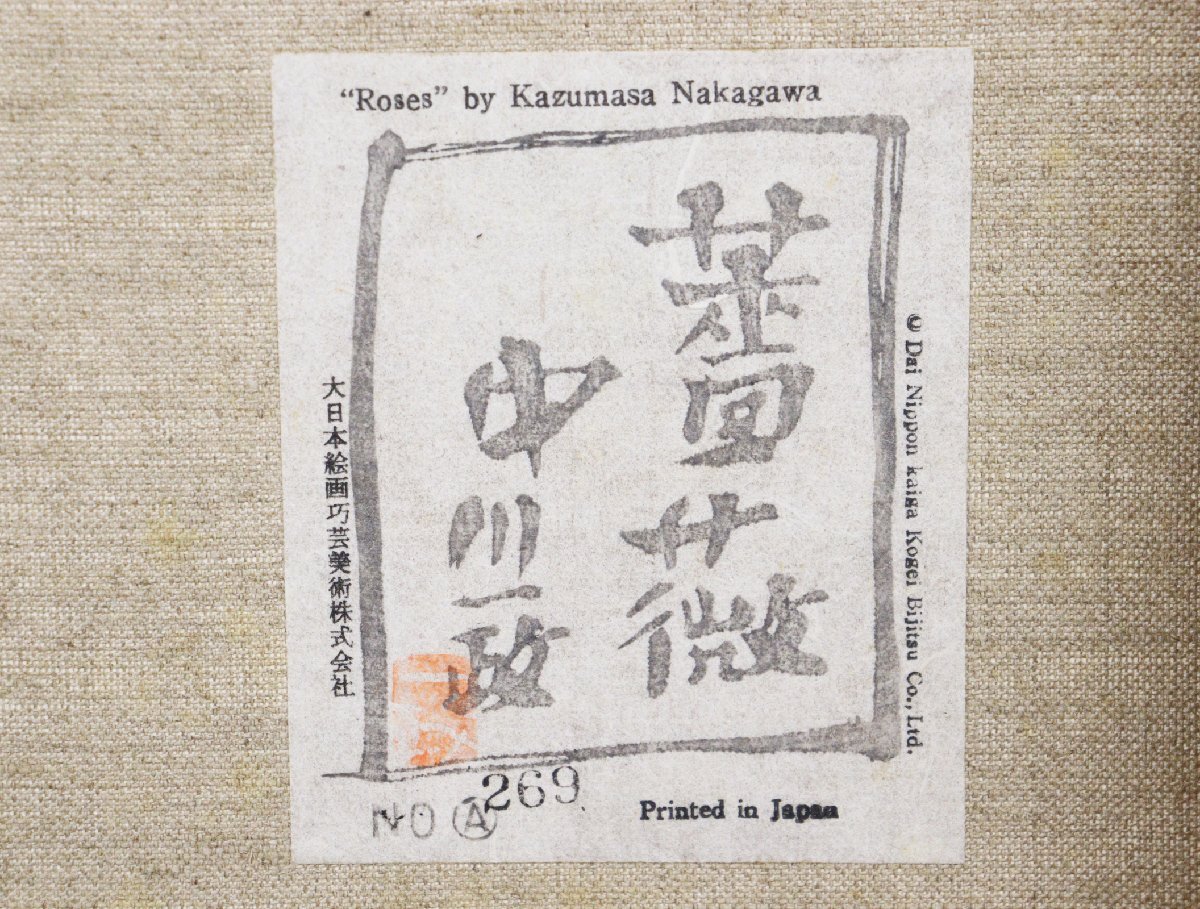 “Roses” by Kazumasa Nakagawa
薔薇
中川一政
© Dai Nippon kaiga Kogei Bijitsu Co., Ltd.
大日本絵画巧芸美術株式会社
NO Ⓐ 269
Printed in Japan